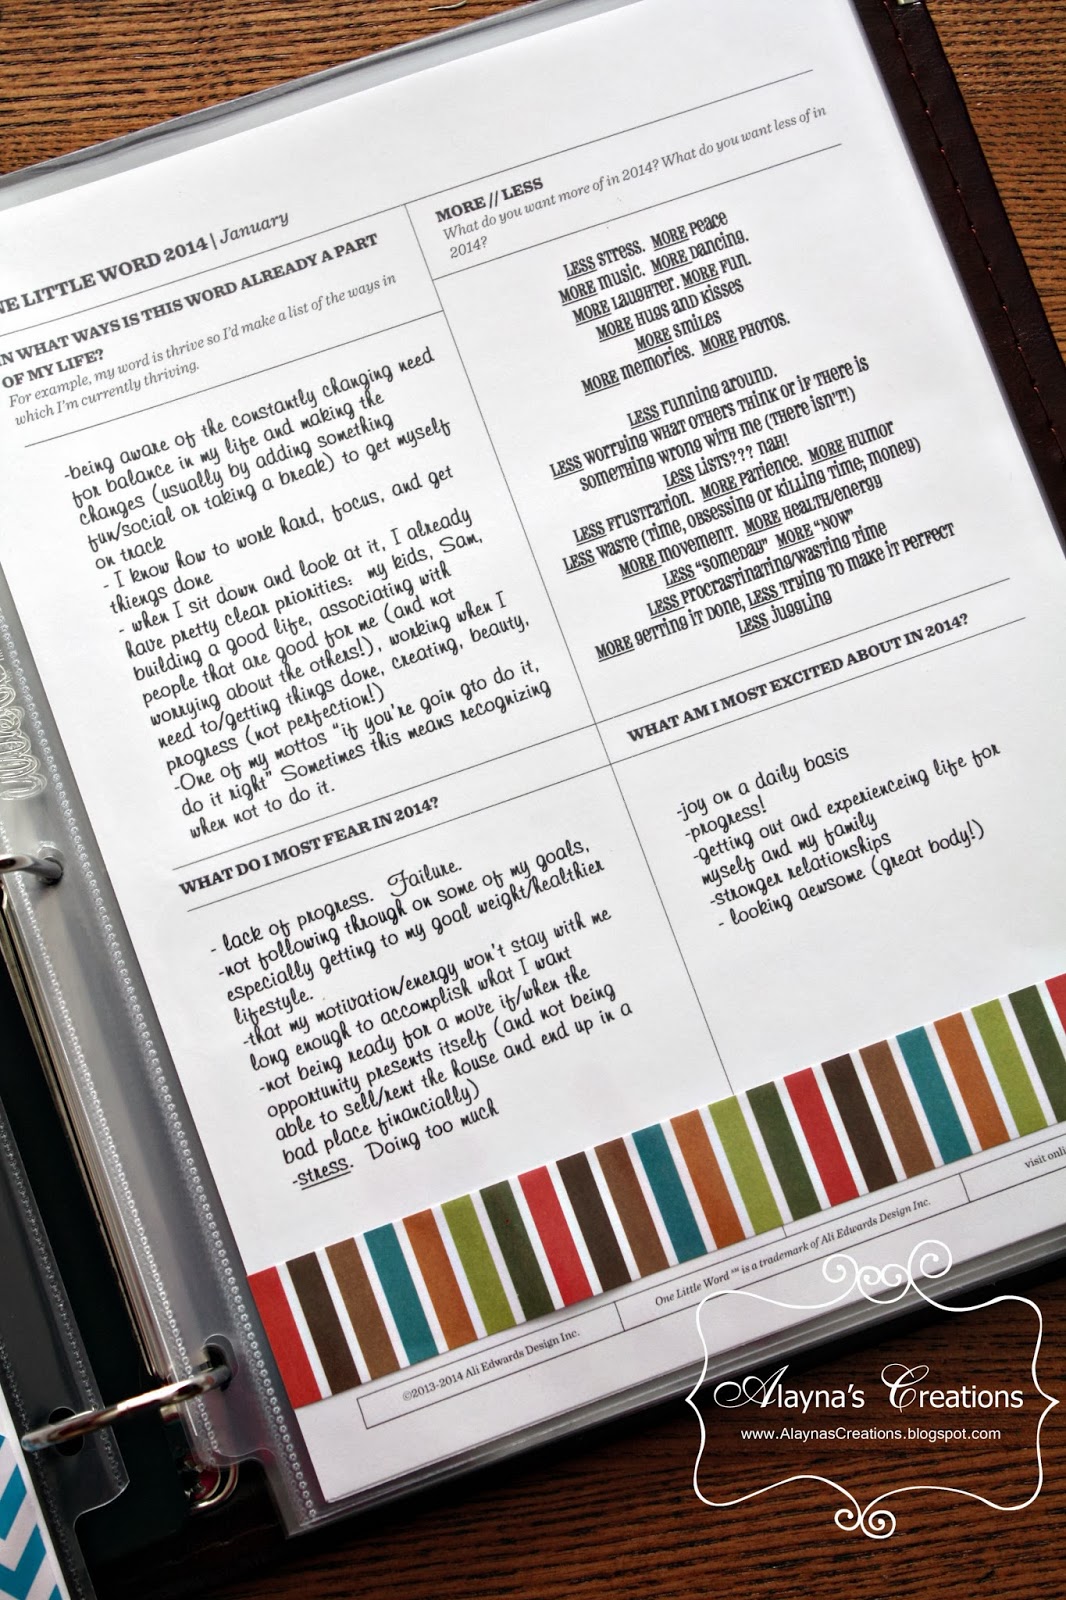 NE LITTLE WORD 2014 | January
IN WHAT WAYS IS THIS WORD ALREADY A PART
OF MY LIFE?
For example, my word is thrive so I'd make a list of the ways in
which I'm currently thriving.
-being aware of the constantly changing need
for balance in my life and making the
changes (usually by adding something
fun/social or taking a break) to get myself
on track
- I know how to work hard, focus, and get
thiengs done
- when I sit down and look at it, I already
have pretty clear priorities: my kids, Sam,
building a good life, associating with
people that are good for me (and not
worrying about the others!), working when I
need to/getting things done, creating, beauty,
progress (not perfection!)
-One of my mottos "if you're goin gto do it,
do it right" Sometimes this means recognizing
when not to do it.
MORE // LESS
What do you want more of in 2014? What do you want less of in
2014?
LESS STRESS. MORE PEACE
MORE MUSIC. MORE DANCING.
MORE LAUGHTER. MORE FUN.
MORE HUGS AND KISSES
MORE SMILES
MORE MEMORIES. MORE PHOTOS.
LESS RUNNING AROUND.
LESS WORRYING WHAT OTHERS THINK OR IF THERE IS
SOMETHING WRONG WITH ME (THERE ISN'T!)
LESS LISTS??? NAH!
LESS FRUSTRATION. MORE PATIENCE. MORE HUMOR
LESS WASTE (TIME, OBSESSING OR KILLING TIME; MONEY)
MORE MOVEMENT. MORE HEALTH/ENERGY
LESS "SOMEDAY" MORE "NOW"
LESS PROCRASTINATING/WASTING TIME
MORE GETTING IT DONE, LESS TRYING TO MAKE IT PERFECT
LESS JUGGLING
WHAT DO I MOST FEAR IN 2014?
- lack of progress. Failure.
-not following through on some of my goals,
especially getting to my goal weight/healthier
lifestyle.
-that my motivation/energy won't stay with me
long enough to accomplish what I want
-not being ready for a move if/when the
opportunity presents itself (and not being
able to sell/rent the house and end up in a
bad place financially)
-stress. Doing too much
WHAT AM I MOST EXCITED ABOUT IN 2014?
-joy on a daily basis
-progress!
-getting out and experienceing life for
myself and my family
-stronger relationships
- looking aewsome (great body!)
©2013-2014 Ali Edwards Design Inc.
One Little Word ℠ is a trademark of Ali Edwards Design Inc.
visit onli
Alayna's Creations
www.AlaynasCreations.blogspot.com